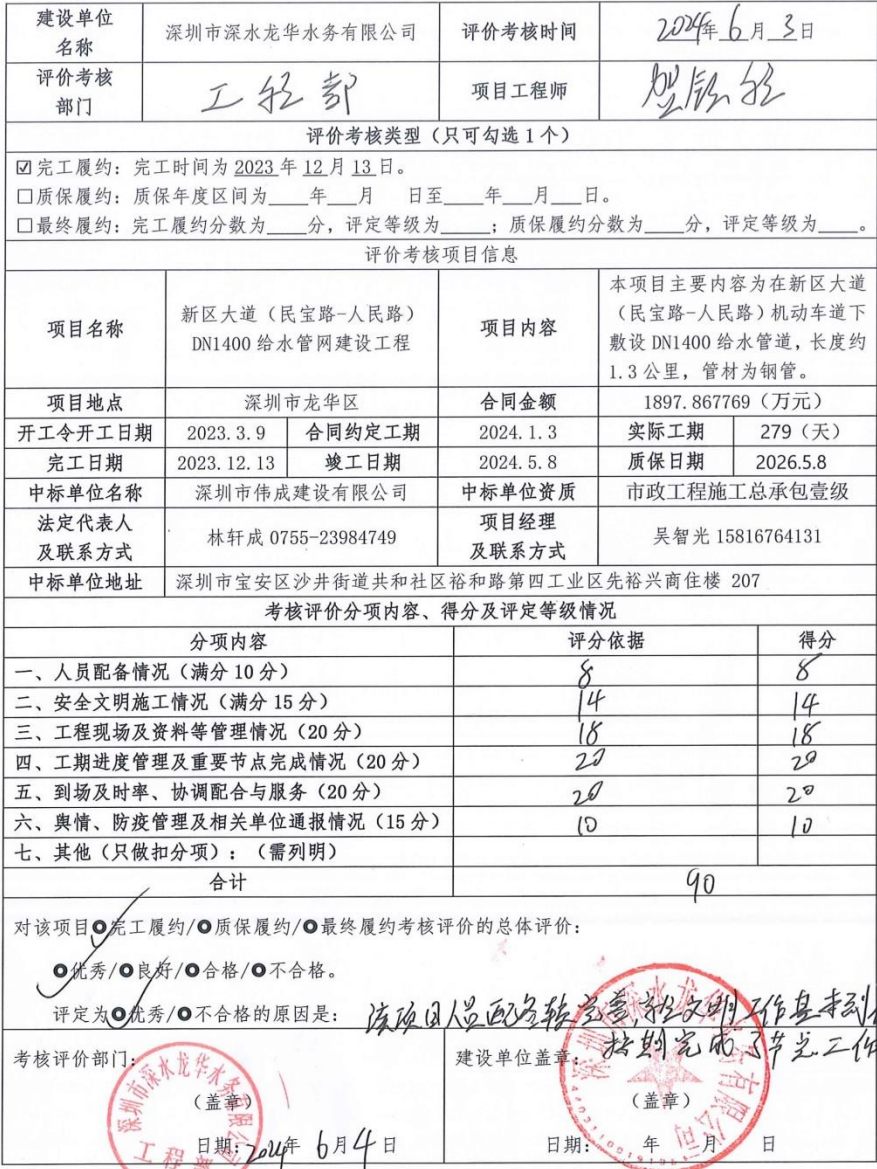 建设单位名称 深圳市深水龙华水务有限公司 评价考核时间 2024年6月3日
评价考核部门 工程部 项目工程师
评价考核类型（只可勾选1个）
☑完工履约：完工时间为 2023 年 12 月 13 日。
□质保履约：质保年度区间为____年___月 日至____年___月___日。
□最终履约：完工履约分数为____分，评定等级为_____；质保履约分数为____分，评定等级为____。
评价考核项目信息
项目名称 新区大道（民宝路-人民路）DN1400 给水管网建设工程 项目内容 本项目主要内容为在新区大道（民宝路-人民路）机动车道下敷设 DN1400 给水管道，长度约1.3 公里，管材为钢管。
项目地点 深圳市龙华区 合同金额 1897.867769（万元）
开工令开工日期 2023.3.9 合同约定工期 2024.1.3 实际工期 279（天）
完工日期 2023.12.13 竣工日期 2024.5.8 质保日期 2026.5.8
中标单位名称 深圳市伟成建设有限公司 中标单位资质 市政工程施工总承包壹级
法定代表人及联系方式 林轩成 0755-23984749 项目经理及联系方式 吴智光 15816764131
中标单位地址 深圳市宝安区沙井街道共和社区裕和路第四工业区先裕兴商住楼 207
考核评价分项内容、得分及评定等级情况
分项内容 评分依据 得分
一、人员配备情况（满分 10 分） 8 8
二、安全文明施工情况（满分 15 分） 14 14
三、工程现场及资料等管理情况（20 分） 18 18
四、工期进度管理及重要节点完成情况（20 分） 20 20
五、到场及时率、协调配合与服务（20 分） 20 20
六、舆情、防疫管理及相关单位通报情况（15 分） 10 10
七、其他（只做扣分项）：（需列明）
合计 90
对该项目完工履约/质保履约/最终履约考核评价的总体评价：
优秀/良好/合格/不合格。
评定为优秀/不合格的原因是： 该项目人员配备较完善，文明工作基本到
按期完成了节点工作
考核评价部门： 建设单位盖章：
（盖章） （盖章）
日期：2024年 6月4日 日期： 年 月 日
深圳市深水龙华水务有限公司
工程部